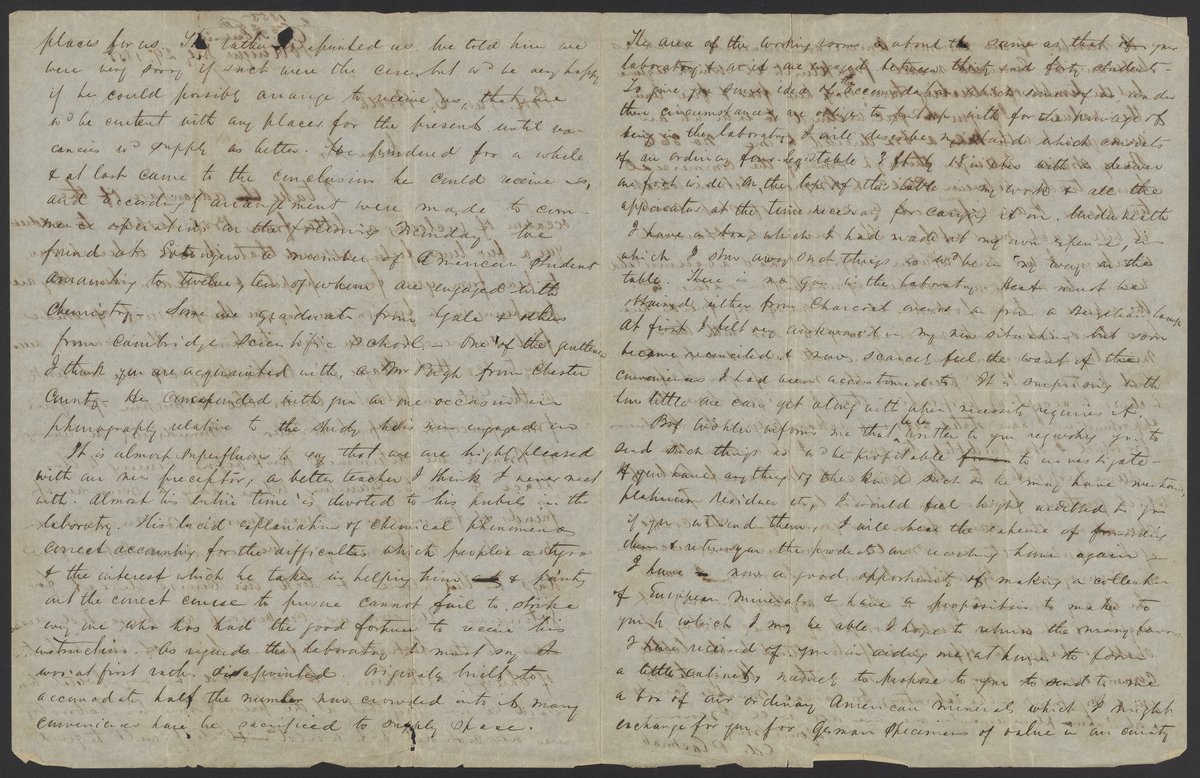 places for us. This rather disapointed us. We told him we
were very sorry if such were the case but wd be very happy
if he could possibly arrange to receive us, that we
wd be content with any places for the present until va-
cancies wd supply us better. He pondered for a while
& at last came to the conclusion he could receive us,
and accordingly arrangement were made to com-
mence operations on the following Monday. We
found at Gottingen a number of American students
amounting to twelve, ten of whom are engaged with
Chemistry. Some are graduates from Yale & others
from Cambridge Scientific School. One of the gentlemen
I think you are acquainted with, a Mr Pugh from Chester
County. He corresponded with you on one occasion in
phonography relative to the study he is now engaged in
It is almost superfluous to say that we are highly pleased
with our new preceptor, a better teacher I think I never met
with. Almost his entire time is devoted to his pupils in the
laboratory. His lucid explanations of chemical phenomena
correct accounting for the difficulties which perplex a tyro
& the interest which he takes in helping him & pointing
out the correct course to pursue cannot fail to strike
any one who has had the good fortune to receive his
instructions. As regards the laboratory I must say
was at first rather disapointed. Originally built to
accomodate half the number now crowded into it many
conveniences have be sacrificed to supply space.
The area of the working rooms is about the same as that of your
laboratory & at it are engaged between thirty and forty students.
To give you some idea of the accomodations which some of us under
these circumstances are obliged to put up with for the advantage of
being in the laboratory I will describe my stand which consists
of an ordinary four-legged table 3 ft by 18 inches with a drawer
one foot wide. On the top of this table is my work & all the
apparatus at the time necessary for carrying it on. Underneath
I have a box, which I had made at my own expense, in
which I stow away such things as wd be in my way on the
table. There is no gas in the laboratory. Heat must be
obtained either from Charcoal ovens or from a Berzelius lamp
At first I felt very awkward in my new situation but soon
became reconciled & now scarcely feel the want of the
conveniences I had been accustomed to. It is surprising with
how little one can get along with when necessity requires it.
Prof Wohler informs me that he has written to you requesting you to
send such things as wd be profitable to investigate.
If you have anything of the kind such as he may have mentioned
platinum residues etc, I would feel highly indebted to you
if you wd send them. I will bear the expense of sending
them & return you the products on reaching home again.
I have now a good opportunity of making a collection
of European minerals & have a proposition to make to
you by which I may be able I hope to return the many favors
I have received of you in aiding me at home to form
a little cabinet, namely to propose to you to send to me
a box of our ordinary American minerals which I might
exchange for you for German specimens of value in our country